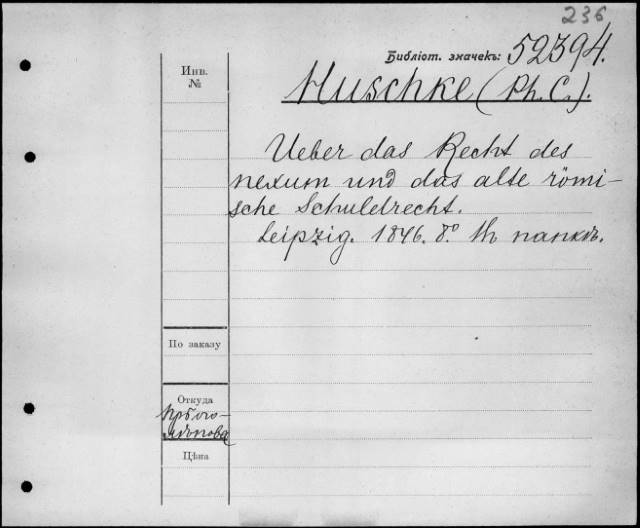 236
Библіот. значекъ: 52394.
Инв.
№
Huschke (Ph. C.).
Ueber das Recht des
nexum und das alte römi-
sche Schuldrecht.
Leipzig. 1846. 8º папкѣ.
По заказу
Откуда
Цѣна